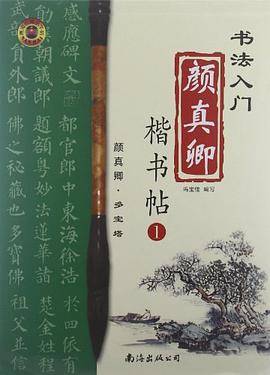 书法入门
颜真卿
楷书帖
1
冯宝佳 编写
颜真卿·多宝塔
感應碑文 都官郎中東海徐浩 於四依有
朝議郎 題額粵妙法蓮華 楚金姓程
武部員外郎 佛之秘藏也多寶佛 祖父並信
南海出版公司